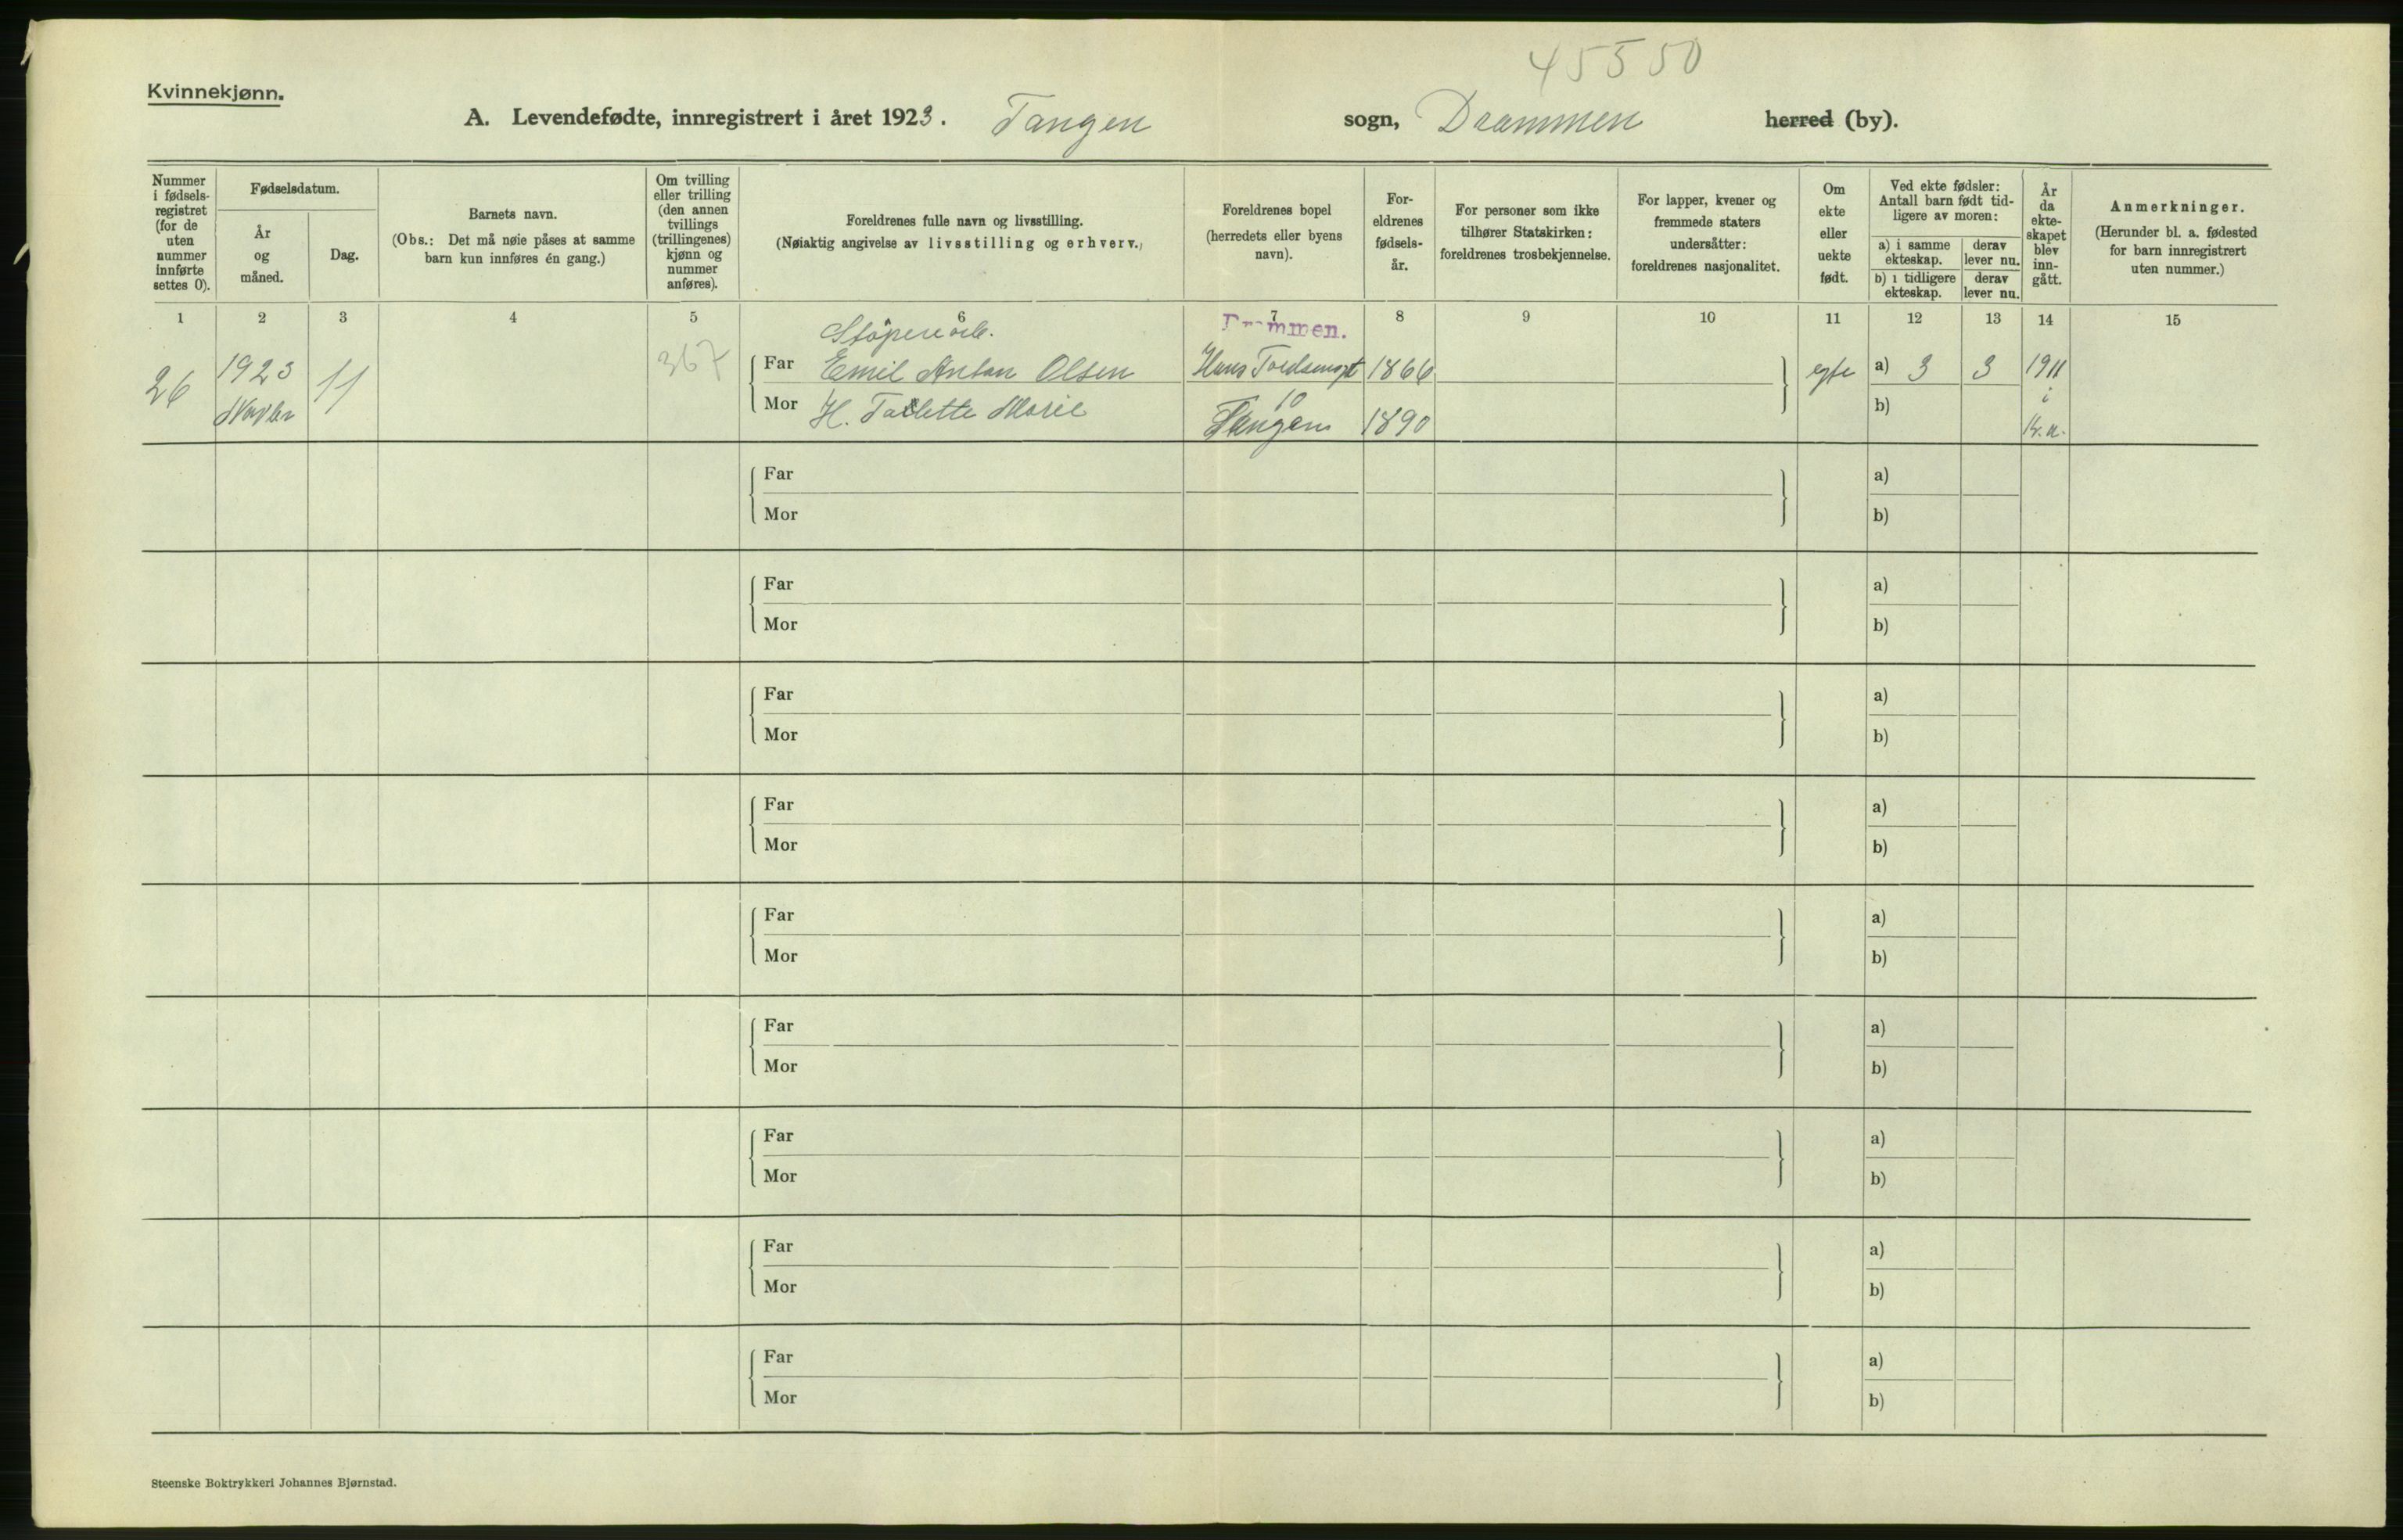 45550
Kvinnekjønn.
A. Levendefødte, innregistrert i året 1923. Tangen sogn, Drammen herred (by).
Nummer i fødsels-registret (for de uten nummer innførte settes 0).
Fødselsdatum.
År og måned.
Dag.
Barnets navn.
(Obs.: Det må nøie påses at samme barn kun innføres én gang.)
Om tvilling eller trilling (den annen tvillings (trillingenes) kjønn og nummer anføres).
Foreldrenes fulle navn og livsstilling.
(Nøiaktig angivelse av livsstilling og erhverv.)
Foreldrenes bopel (herredets eller byens navn).
For-eldrenes fødsels-år.
For personer som ikke tilhører Statskirken: foreldrenes trosbekjennelse.
For lapper, kvener og fremmede staters undersåtter: foreldrenes nasjonalitet.
Om ekte eller uekte født.
Ved ekte fødsler: Antall barn født tid-ligere av moren:
a) i samme ekteskap.
derav lever nu.
b) i tidligere ekteskap.
derav lever nu.
År da ekte-skapet blev inn-gått.
Anmerkninger.
(Herunder bl. a. fødested for barn innregistrert uten nummer.)
1 2 3 4 5 6 7 8 9 10 11 12 13 14 15
Støperiarb. Drammen.
26 1923 11 367 Far Emil Anton Olsen Hans 1866 egte a) 3 3 1911
Novbr Mor H. Marie 10 Tangen 1890 b) i Kr.a.
Far a)
Mor b)
Far a)
Mor b)
Far a)
Mor b)
Far a)
Mor b)
Far a)
Mor b)
Far a)
Mor b)
Far a)
Mor b)
Far a)
Mor b)
Far a)
Mor b)
Steenske Boktrykkeri Johannes Bjørnstad.